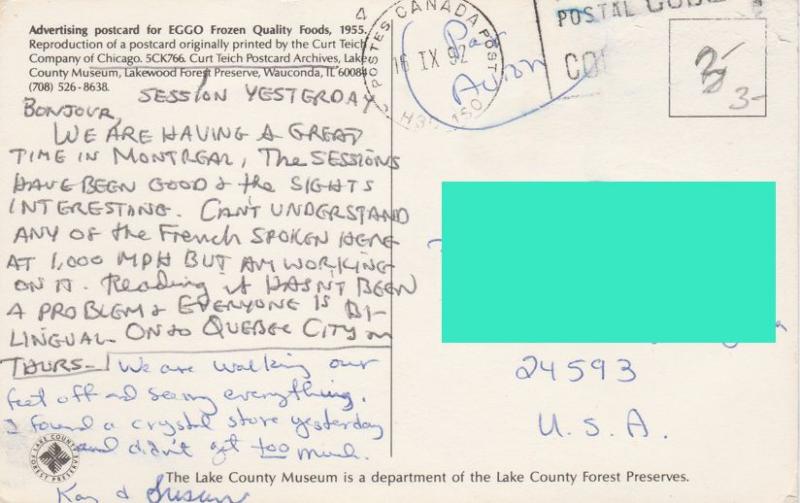 Advertising postcard for EGGO Frozen Quality Foods, 1955.
Reproduction of a postcard originally printed by the Curt Teich
Company of Chicago. 5CK766. Curt Teich Postcard Archives, Lake
County Museum, Lakewood Forest Preserve, Wauconda, IL 60084
(708) 526-8638.
SESSION YESTERDAY
BONJOUR,
WE ARE HAVING A GREAT
TIME IN MONTREAL, The SESSIONS
HAVE BEEN GOOD & the SIGHTS
INTERESTING. CAN'T UNDERSTAND
ANY OF the French SPOKEN HERE
AT 1,000 MPH BUT AM WORKING
ON IT. Reading it HASN'T BEEN
A PROBLEM & EVERYONE IS BI-
LINGUAL. ON to QUEBEC CITY on
THURS-
We are walking our
feet off and seeing everything.
I found a crystal store yesterday
and didn't get too much.
Kay &
LAKE COUNTY
FOREST PRESERVE
The Lake County Museum is a department of the Lake County Forest Preserves.
POSTES CANADA POST
16 IX 92
Par
Avion
POSTAL CODE
3-
24593
U.S.A.